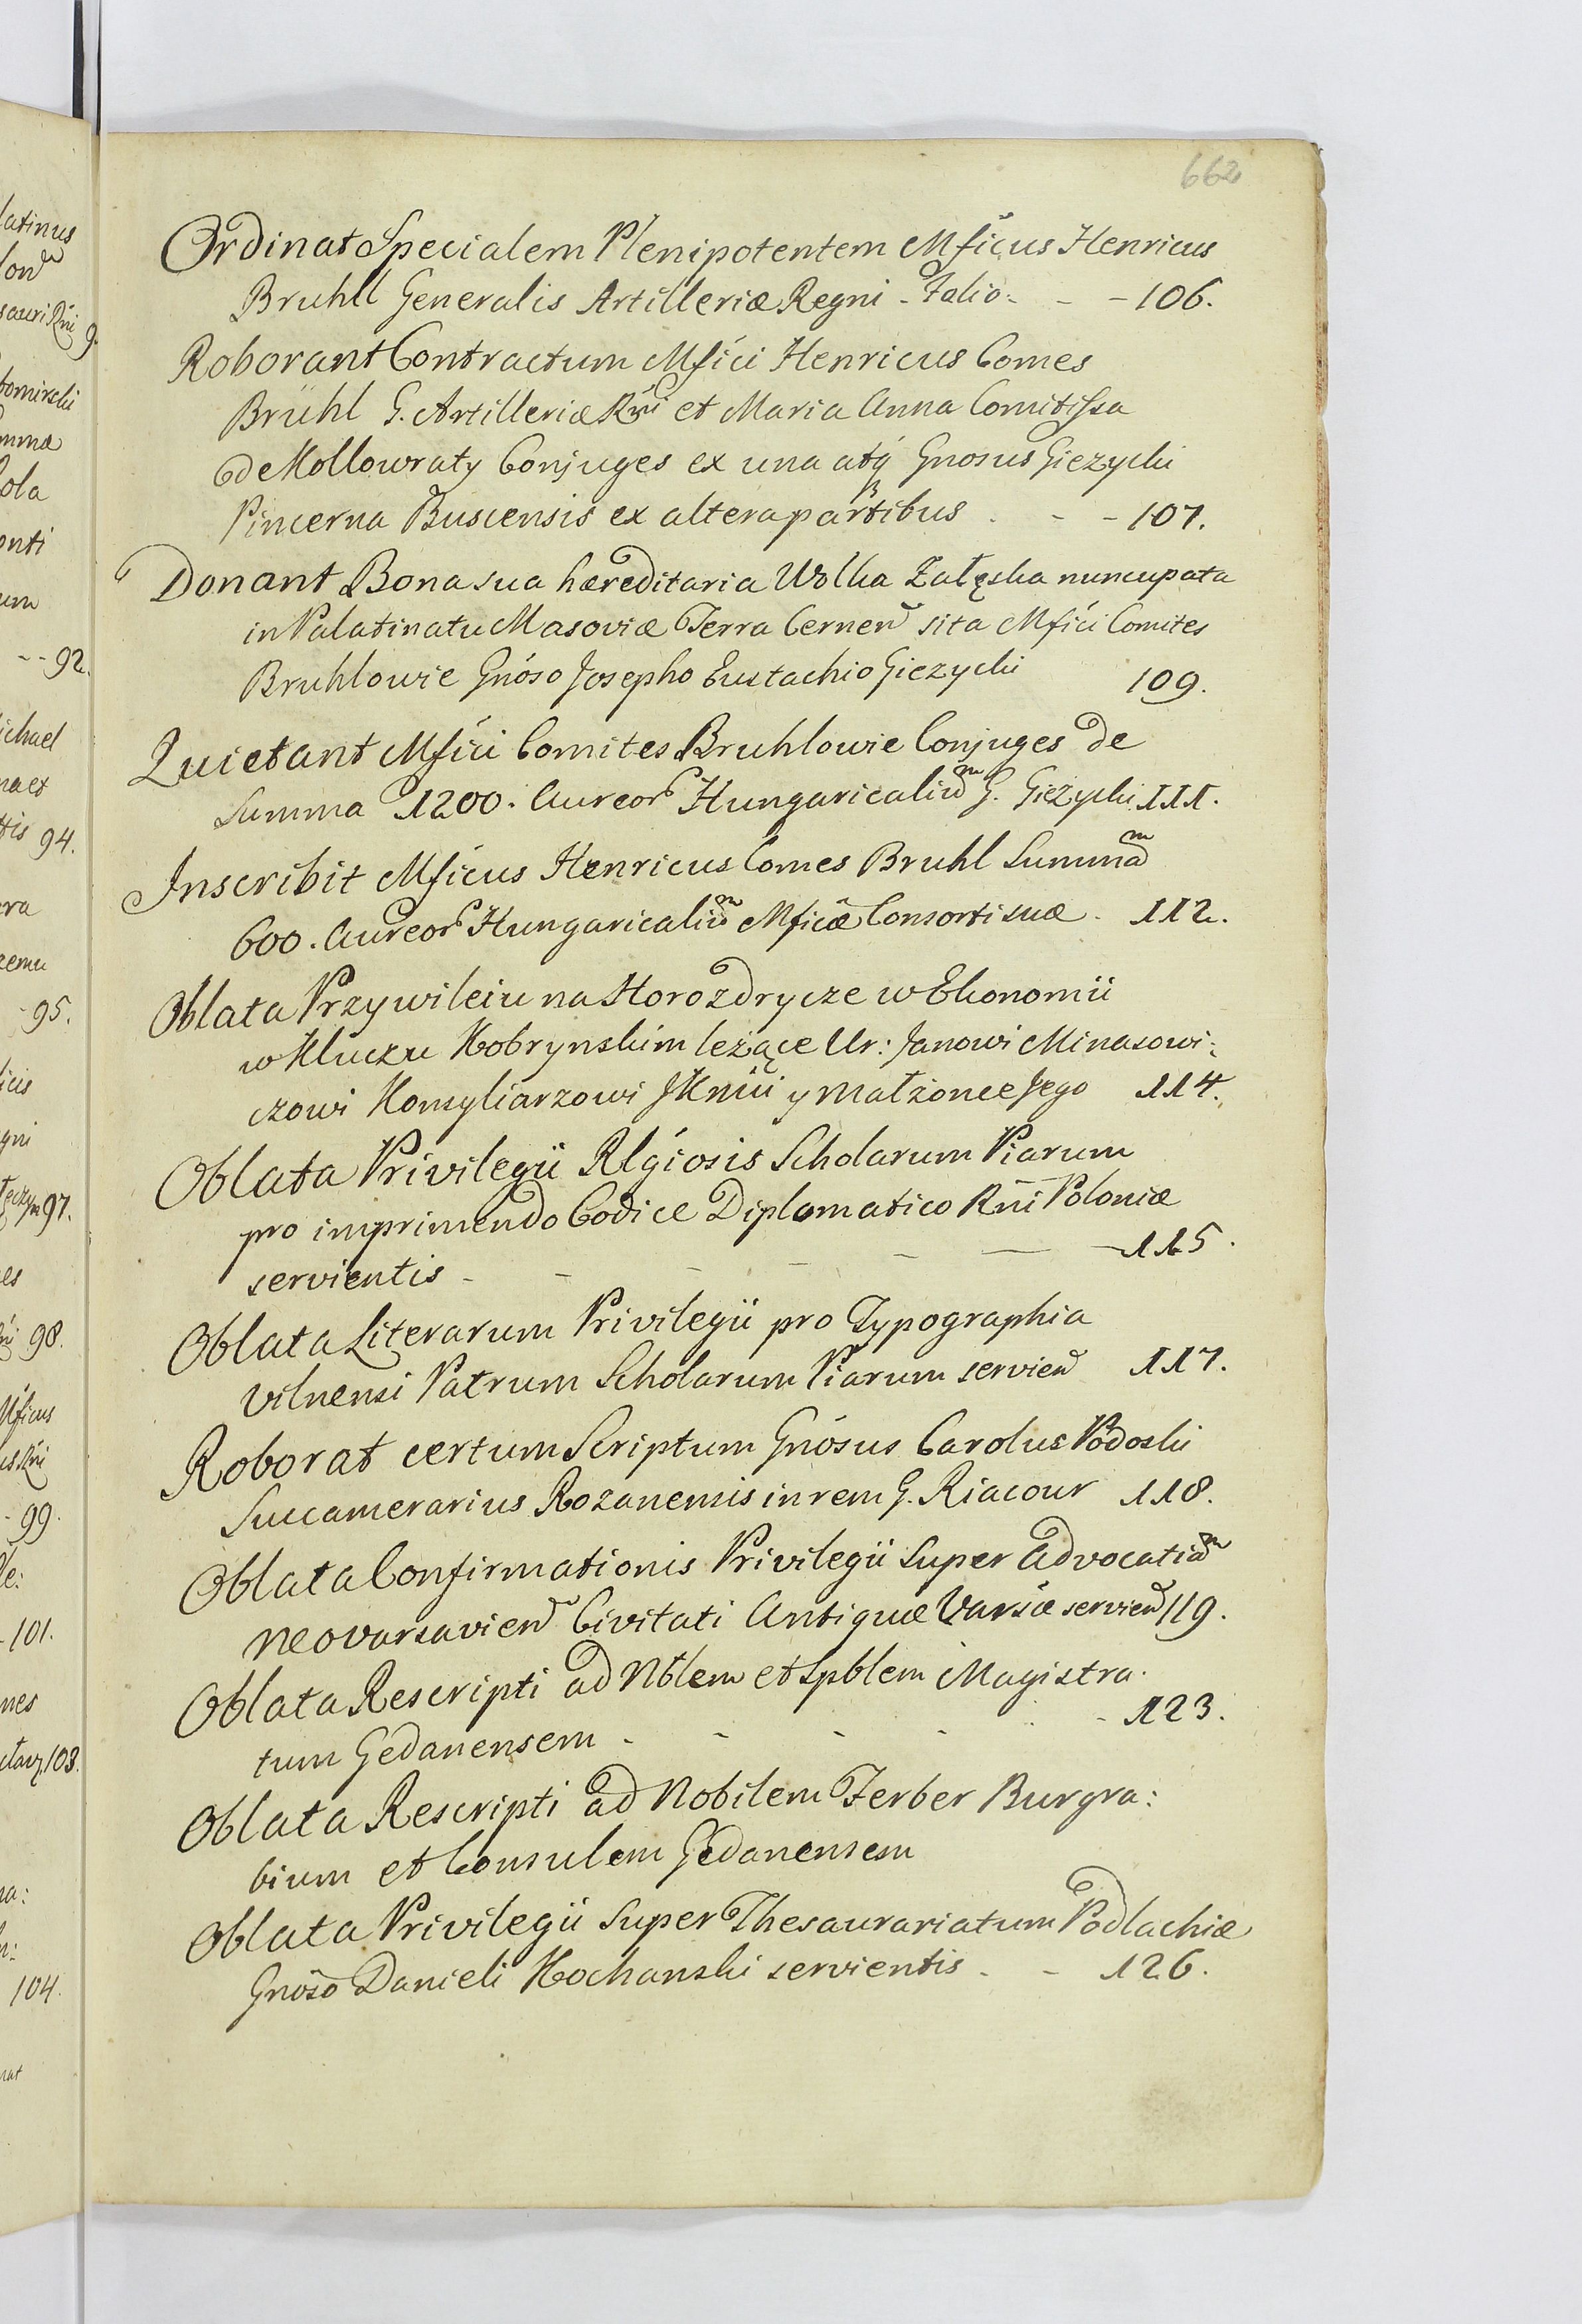 662
Ordinat Specialem Plenipotentem Mficus Henricus
Bruhll Generalis Artilleriæ Regni - Folio - - - 106.
Roborant Contractum Mfici Henricus Comes
Brühl G. Artilleriæ Rni et Maria Anna Comitissa
de Kollowraty Conjuges ex una atq Gnosus Giezycki
Pincerna Buscensis ex altera partibus - - - 107.
Donant Bona sua hæreditaria Wolka Załęska nuncupata
in Palatinatu Masoviæ Terra Cernen sita Mfici Comites
Bruhlowie Gnoso Josepho Eustachio Giezycki 109.
Quietant Mfici Comites Bruhlowie Conjuges de
Summa 1200. Aureor Hungaricalium G. Gieżycki 111.
Inscribit Mficus Henricus Comes Bruhl Summam
600. Aureor Hungaricalium Mficæ Consorti suæ - 112.
Oblata Przywileiu na Horozdrycze w Ekonomii
w Kluczu Kobrynskim leżące Ur: Janowi Minasowi:
czowi Komyliarzowi JKmci y Małżonce Jego 114.
Oblata Privilegii Rlgiosis Scholarum Piarum
pro imprimendo Codice Diplomatico Rni Poloniæ
servientis - - - - - - 115.
Oblata Literarum Privilegii pro Typographia
Vilnensi Patrum Scholarum Piarum servien 117.
Roborat certum Scriptum Gnosus Carolus Podoski
Succamerarius Rozanensis in rem G. Riacour 118.
Oblata Confirmationis Privilegii super Advocatiam
Neovarsavien Civitati Antiquæ Varsæ servien 119.
Oblata Rescripti ad Nblem et Spblem Magistra-
tum Gedanensem - - - - - - 123.
Oblata Rescripti ad Nobilem Ferber Burgra:
bium et Consulem Gedanensem
Oblata Privilegii super Thesaurariatum Podlachiæ
Gnoso Danieli Kochanski servientis - - 126.